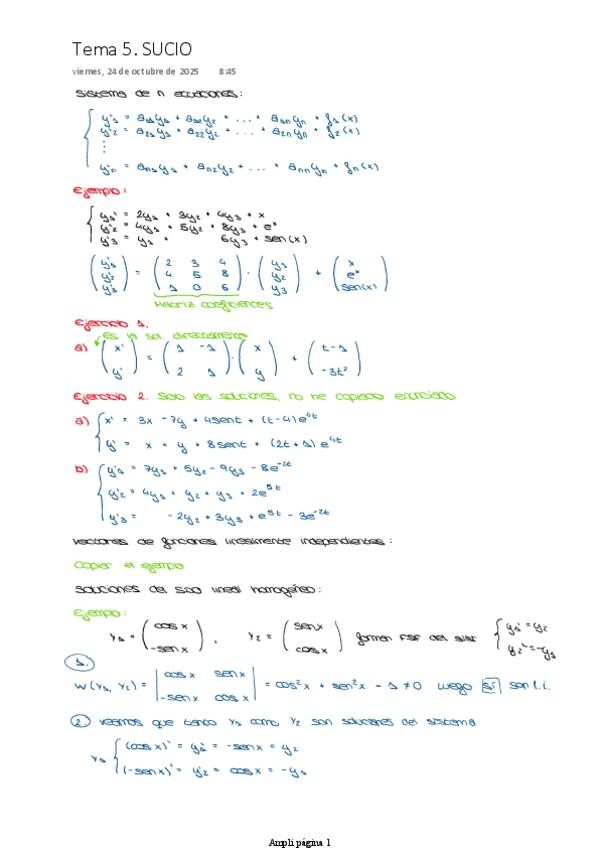 Tema 5. SUCIO
viernes, 24 de octubre de 2025 8:45
Sistema de n ecuaciones:
y'₁ = a₁₁y₁ + a₁₂y₂ + ... + a₁ₙyₙ + f₁(x)
y'₂ = a₂₁y₁ + a₂₂y₂ + ... + a₂ₙyₙ + f₂(x)
⋮
y'ₙ = aₙ₁y₁ + aₙ₂y₂ + ... + aₙₙyₙ + fₙ(x)
Ejemplo:
y₁' = 2y₁ + 3y₂ + 4y₃ + x
y'₂ = 4y₁ + 5y₂ + 8y₃ + eˣ
y'₃ = y₁ + 6y₃ + sen(x)
(y'₁) = (2 3 4) · (y₁) + (x)
(y'₂) (4 5 8) (y₂) (eˣ)
(y'₃) (1 0 6) (y₃) (sen(x))
Matriz coeficientes
Ejercicio 1.
es la sol. directamente
a) (x') = (1 -1) · (x) + (t-1)
(y') (2 1) (y) (-3t²)
Ejercicio 2. Solo las soluciones, no he copiado enunciado
a) x' = 3x - 7y + 4sent + (t-4)e⁴ᵗ
y' = x + y + 8sent + (2t+1)e⁴ᵗ
b) y'₁ = 7y₁ + 5y₂ - 9y₃ - 8e⁻²ᵗ
y'₂ = 4y₁ + y₂ + y₃ + 2e⁵ᵗ
y'₃ = -2y₂ + 3y₃ + e⁵ᵗ - 3e⁻²ᵗ
Vectores de funciones linealmente independientes:
Copiar el ejemplo
Soluciones del SDO lineal homogéneo:
Ejemplo:
Y₁ = (cos x) , Y₂ = (sen x) forman FSF del sist { y₁' = y₂
(-sen x) (cos x) y₂' = -y₁
1.
W(Y₁, Y₂) = |cos x sen x| = cos²x + sen²x = 1 ≠ 0 luego sí son l.i.
|-sen x cos x|
2 Veamos que tanto Y₁ como Y₂ son soluciones del sistema
Y₁ { (cos x)' = y₁' = -sen x = y₂
(-sen x)' = y'₂ = cos x = -y₁
Ampli página 1